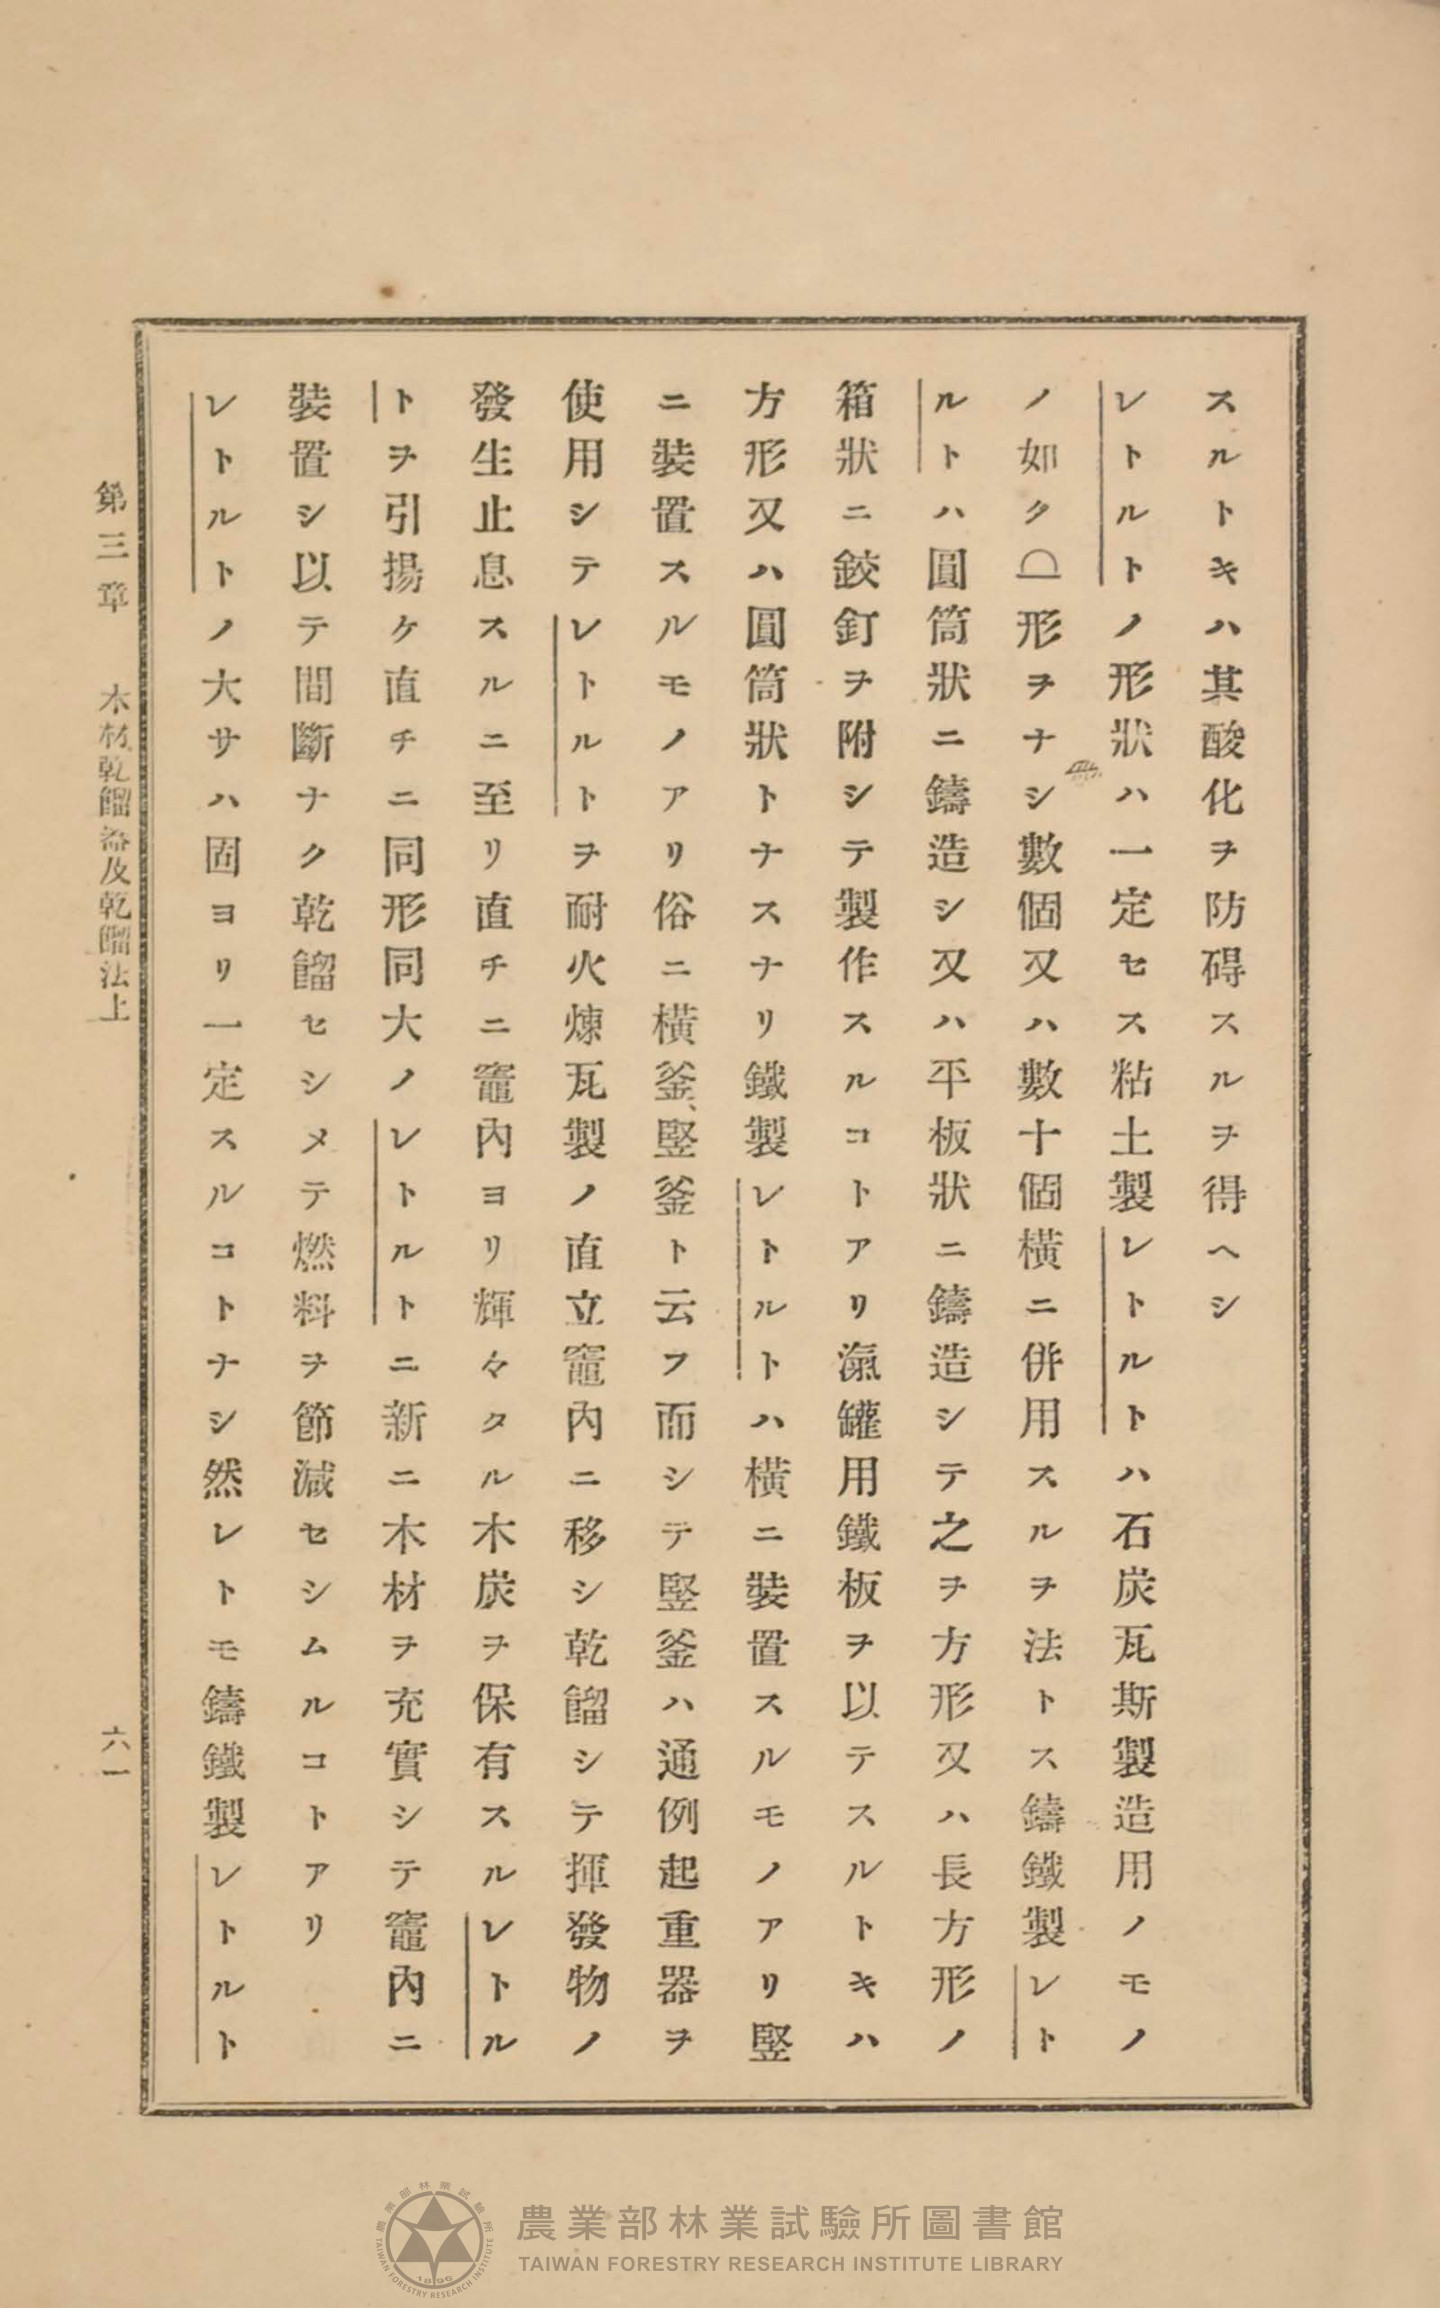 スルトキハ其酸化ヲ防碍スルヲ得ヘシ
レトルトノ形狀ハ一定セス粘土製レトルトハ石炭瓦斯製造用ノモノ
ノ如ク⌓形ヲナシ數個又ハ數十個橫ニ併用スルヲ法トス鑄鐵製レト
ルトハ圓筒狀ニ鑄造シ又ハ平板狀ニ鑄造シテ之ヲ方形又ハ長方形ノ
箱狀ニ鉸釘ヲ附シテ製作スルコトアリ滊罐用鐵板ヲ以テスルトキハ
方形又ハ圓筒狀トナスナリ鐵製レトルトハ橫ニ裝置スルモノアリ竪
ニ裝置スルモノアリ俗ニ橫釜、竪釜ト云フ而シテ竪釜ハ通例起重器ヲ
使用シテレトルトヲ耐火煉瓦製ノ直立竈內ニ移シ乾餾シテ揮發物ノ
發生止息スルニ至リ直チニ竈內ヨリ輝々タル木炭ヲ保有スルレトル
トヲ引揚ケ直チニ同形同大ノレトルトニ新ニ木材ヲ充實シテ竈內ニ
裝置シ以テ間斷ナク乾餾セシメテ燃料ヲ節減セシムルコトアリ
レトルトノ大サハ固ヨリ一定スルコトナシ然レトモ鑄鐵製レトルト
第三章 木材乾餾器及乾餾法上
六一
農業部林業試驗所圖書館
TAIWAN FORESTRY RESEARCH INSTITUTE LIBRARY
農業部林業試驗所
TAIWAN FORESTRY RESEARCH INSTITUTE
1896